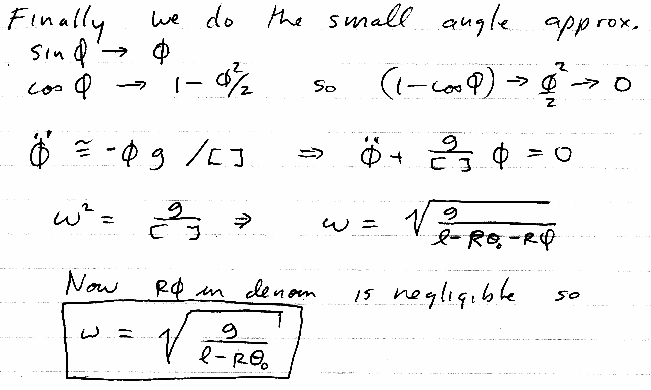 Finally we do the small angle approx.
sin φ → φ
cos φ → 1 - φ²/2 so (1-cosφ) → φ²/2 → 0
φ̈ ≅ -φ g /[ ] ⇒ φ̈ + g/[ ] φ = 0
ω² = g/[ ] ⇒ ω = √(g/(l-Rθ₀-Rφ))
Now Rφ in denom is negligible so
ω = √(g/(l-Rθ₀))